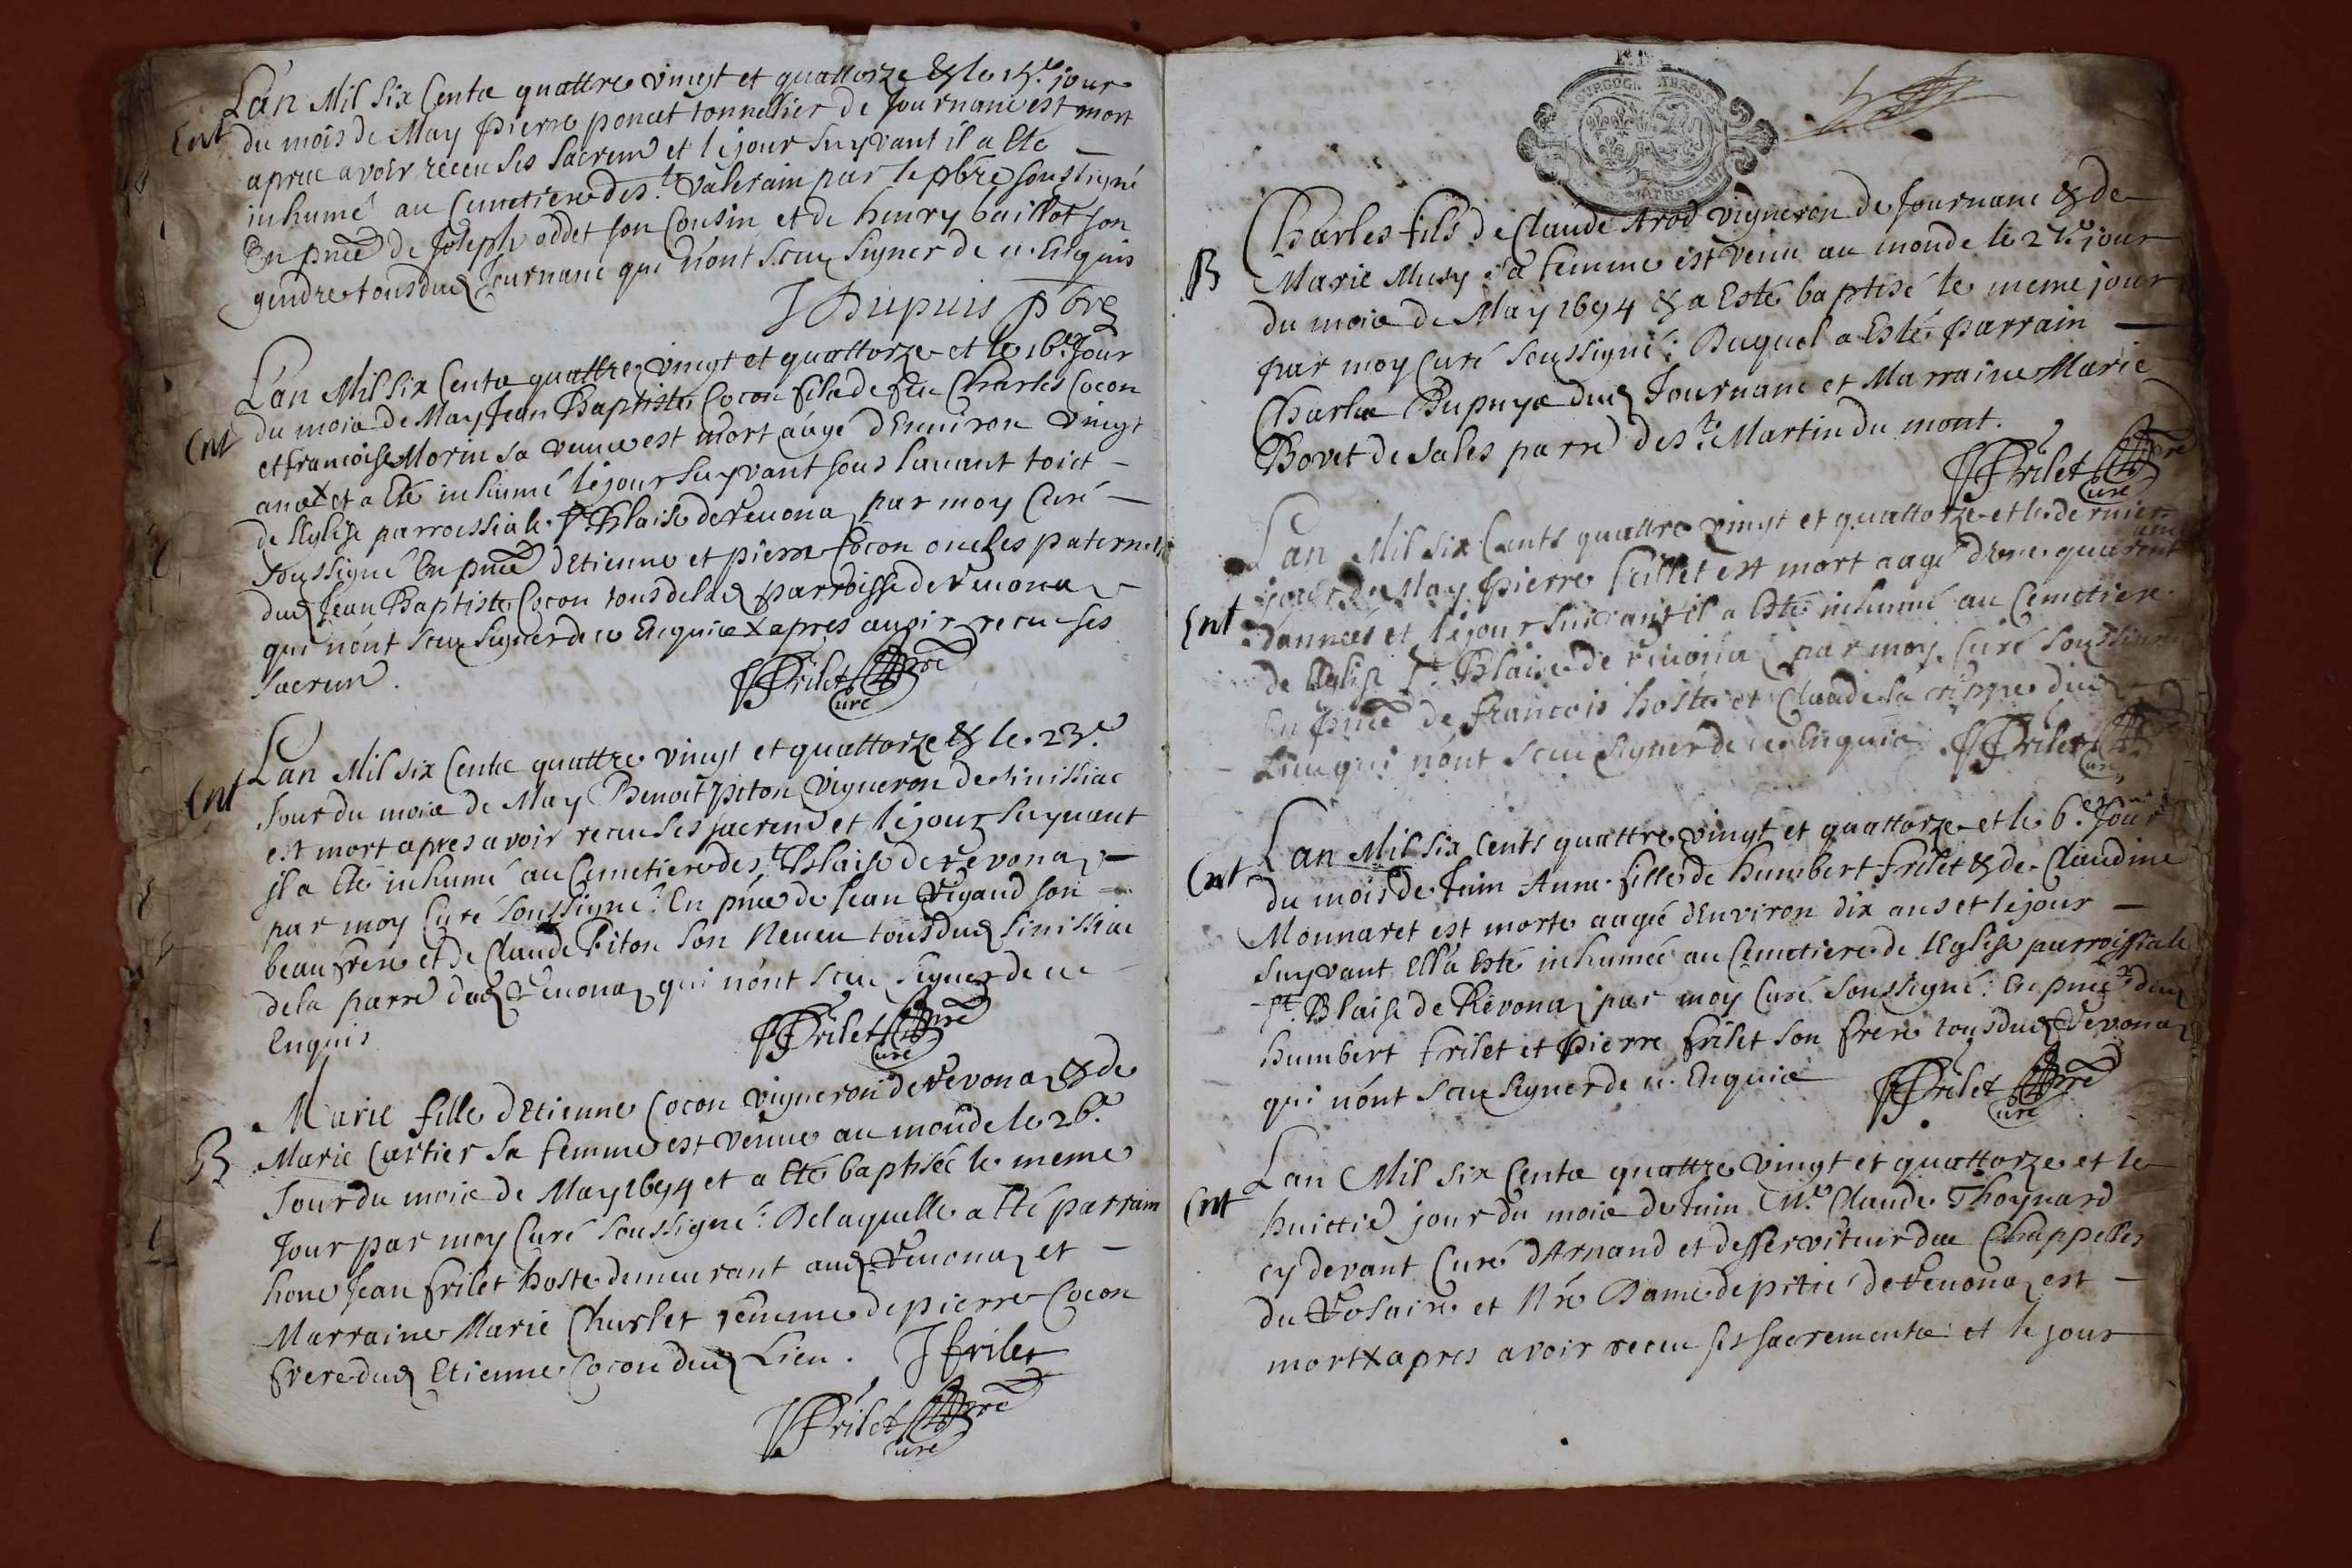 Lan Mil six Cents quattre vingt et quattorze & le 15.e jour
Ent
du mois de May Pierre poncet tonnellier de Journanc est mort
apres avoir receu ses sacrem et le jour suyvant il a ete
inhumé au Cemetiere de st. valerain par le pbre soussigné
En pnce de Joseph oddet son Cousin et de henry baillot son
gendre tous dud Journanc qui n'ont sceu signer de ce Enquis
J Dupuis pbre
Lan Mil six Cents quattre vingt et quattorze et le 16.e Jour
Ent
du mois de May Jean Baptiste Cocon fils de feu Charles Cocon
et francoise Morin sa veuve est mort aágé d'Environ vingt
ans X et a Eté inhumé le jour suyvant sous lauant toict
de lEglise parroissiale st Blaise de Reuona par moy Curé
soussigné En pnce d'Etienne et pierre Cocon oncles paternels
dud Jean Baptiste Cocon tous de lad parroisse de Reuona
qui n'ont sceu signer de ce Enquis X apres auoir receu ses
sacrem.
JFrilet pre
Curé
Lan Mil six Cents quattre vingt et quattorze & le 23.e
Ent
Jour du mois de May Benoit piton vigneron de Sinissiac
est mort apres avoir receu ses sacrem et le jour suyuant
il a Eté inhumé au Cemetiere de st. Blaise de Revona
par moy Curé soussigné. En pnce de Jean Rigaud son
beau frere et de Claude Piton son Neueu tous dud Sinissiac
de la parre dud Reuona qui n'ont sceu signer de ce
Enquis
JFrilet pre
Curé
Marie fille d'Etienne Cocon vigneron de Revona & de
B
Marie Cartier sa femme est venue au monde le 26.e
Jour du mois de May 1694 et a Eté baptisée le meme
Jour par moy Curé soussigné. De laquelle a Eté parrain
hone Jean frilet hoste demeurant aud. Reuona et
Marraine Marie Churlet femme de pierre Cocon
frere dud Etienne Cocon dud Lieu. J frilet
JFrilet pre
Curé
Charles fils de Claude Arod vigneron de Journanc & de
B
Marie Musy sa femme est venu au monde le 27.e jour
du mois de May 1694 & a Esté baptisé le meme jour
par moy Curé soussigné. Duquel a Esté parrain
Charles Dupuys dud Journanc et Marraine Marie
Bovet de Sales parre de st. Martin du mont.
JFrilet pre
Curé
Lan Mil six Cents quattre vingt et quattorze et le dernier
jour de May Pierre est mort aagé
Ent
d'années et le jour suivant il a Esté inhumé au Cemetiere
de lEglise st. Blaise de Reuona par moy Curé soussigné
En pnce de francois hoste et Claude la rippe dud
Lieu qui n'ont sceu signer de ce Enquis. JFrilet pre
Curé
Lan Mil six Cents quattre vingt et quattorze et le 6.e Jour
Ent
du mois de Juin Anne fille de humbert frilet & de Claudine
Monnaret est morte aagée d'Environ dix ans et le jour
suyvant Ell'a Esté inhumée au Cemetiere de lEglise parroissiale
st. Blaise de Revona par moy Curé soussigné. En pnce dud
humbert frilet et Pierre frilet son frere tous dud Revona
qui n'ont sceu signer de ce Enquis
JFrilet pre
Curé
Lan Mil six Cents quattre vingt et quattorze et le
Ent
huittie jour du mois de Juin Mr. Claude Thoynard
cy devant Curé d'Arnand et desserviteur des Chappelles
du Rosaire et Nre Dame de pitié de Reuona est
mort X apres avoir receu ses sacrements et le jour